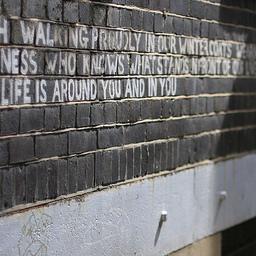 H WALKING PROUDLY IN OUR WINTER COATS W
NESS WHO KNOWS WHAT STANDS IN FRONT OF
LIFE IS AROUND YOU AND IN YOU